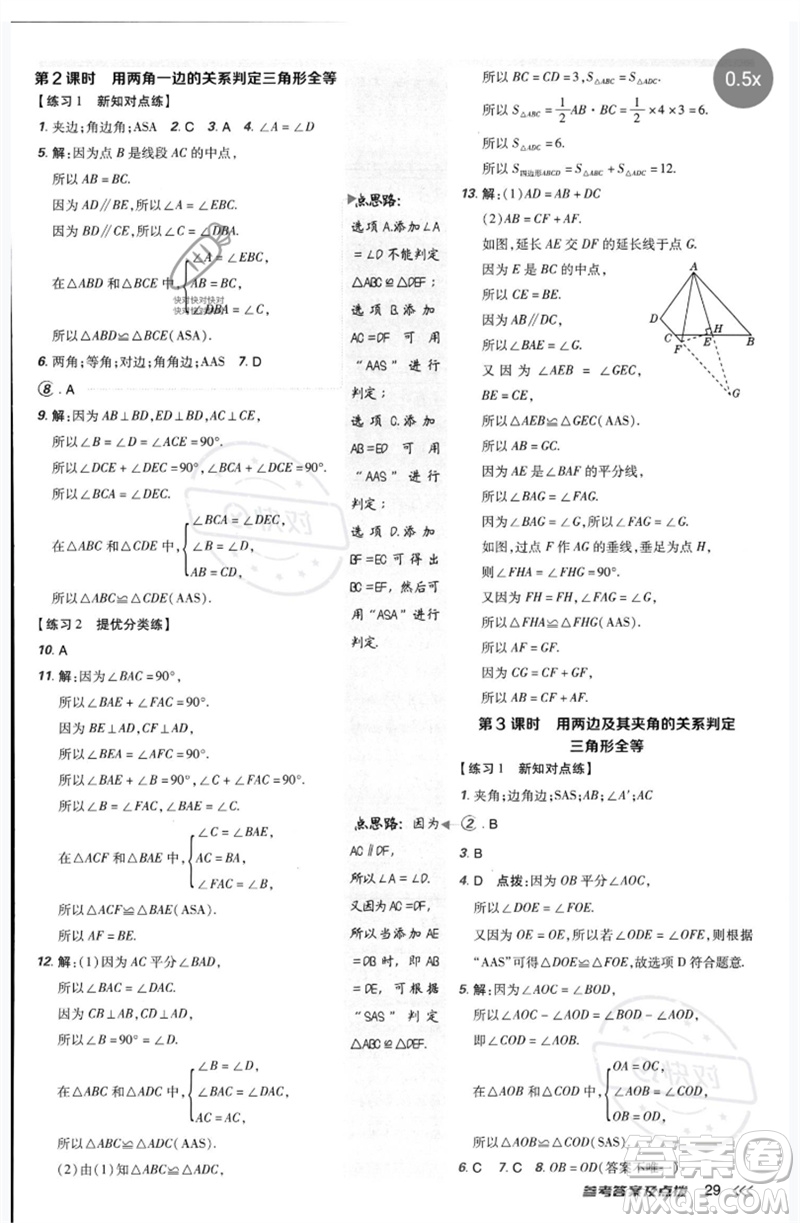 第2课时 用两角一边的关系判定三角形全等
【练习1 新知对点练】
1. 夹边;角边角;ASA 2. C 3. A 4. ∠A=∠D
5. 解:因为点 B 是线段 AC 的中点,
所以 AB=BC.
因为 AD∥BE,所以∠A=∠EBC.
因为 BD∥CE,所以∠C=∠DBA.
在△ABD 和△BCE 中,
∠A=∠EBC,
AB=BC,
∠DBA=∠C,
所以△ABD≌△BCE(ASA).
6. 两角;等角;对边;角角边;AAS 7. D
8. A
9. 解:因为 AB⊥BD,ED⊥BD,AC⊥CE,
所以∠B=∠D=∠ACE=90°.
所以∠DCE+∠DEC=90°,∠BCA+∠DCE=90°.
所以∠BCA=∠DEC.
在△ABC 和△CDE 中,
∠BCA=∠DEC,
∠B=∠D,
AB=CD,
所以△ABC≌△CDE(AAS).
【练习2 提优分类练】
10. A
11. 解:因为∠BAC=90°,
所以∠BAE+∠FAC=90°.
因为 BE⊥AD,CF⊥AD,
所以∠BEA=∠AFC=90°.
所以∠BAE+∠B=90°.
所以∠B=∠FAC,∠BAE+∠FAC=90°.
又因为∠FAC+∠C=90°,
所以∠C=∠BAE.
在△ACF 和△BAE 中,
∠C=∠BAE,
AC=BA,
∠FAC=∠B,
所以△ACF≌△BAE(ASA).
所以 AF=BE.
12. 解:(1)因为 AC 平分∠BAD,
所以∠BAC=∠DAC.
因为 CB⊥AB,CD⊥AD,
所以∠B=90°=∠D.
在△ABC 和△ADC 中,
∠B=∠D,
∠BAC=∠DAC,
AC=AC,
所以△ABC≌△ADC(AAS).
(2)由(1)知△ABC≌△ADC,
点思路:
选项A.添加∠A
=∠D不能判定
△ABC≌△DEF;
选项B.添加
AC=DF可用
“AAS”进行
判定;
选项C.添加
AB=ED可用
“AAS”进行
判定;
选项D.添加
BF=EC可得出
BC=EF,然后可
用“ASA”进行
判定.
点思路:因为
AC∥DF,
所以∠A=∠D.
又因为AC=DF,
所以当添加AE
=DB时,可得AB
=DE,可根据
“SAS”判定
△ABC≌△DEF.
所以 BC=CD=3,S△ABC=S△ADC.
所以 S△ABC=1/2 AB·BC=1/2×4×3=6.
所以 S△ADC=6.
所以 S四边形ABCD=S△ABC+S△ADC=12.
13. 解:(1)AD=AB+DC
(2)AB=CF+AF.
如图,延长 AE 交 DF 的延长线于点 G.
因为 E 是 BC 的中点,
所以 CE=BE.
因为 AB∥DC,
所以∠BAE=∠G.
又因为∠AEB=∠GEC,
BE=CE,
所以△AEB≌△GEC(AAS).
所以 AB=GC.
因为 AE 是∠BAF 的平分线,
所以∠BAG=∠FAG.
因为∠BAG=∠G,所以∠FAG=∠G.
如图,过点 F 作 AG 的垂线,垂足为点 H,
则∠FHA=∠FHG=90°.
又因为 FH=FH,∠FAG=∠G,
所以△FHA≌△FHG(AAS).
所以 AF=GF.
因为 AB=CG=GF+CF,
所以 AB=AF+CF.
A
D
C
F
E
H
B
G
第3课时 用两边及其夹角的关系判定
三角形全等
【练习1 新知对点练】
1. 夹角;边角边;SAS;AB;∠A′;AC
2. B
3. B
4. D 点拨:因为 OB 平分∠AOC,
所以∠DOE=∠FOE.
又因为 OE=OE,所以若∠ODE=∠OFE,则根据
“AAS”可得△DOE≌△FOE,故选项 D 符合题意.
5. 解:因为∠AOC=∠BOD,
所以∠AOC-∠AOD=∠BOD-∠AOD,
即∠COD=∠AOB.
在△AOB 和△COD 中,
OA=OC,
∠AOB=∠COD,
OB=OD,
所以△AOB≌△COD(SAS).
6. C 7. C 8. OB=OD(答案不唯一)
参考答案及点拨 29
0.5x
快对
答案圈